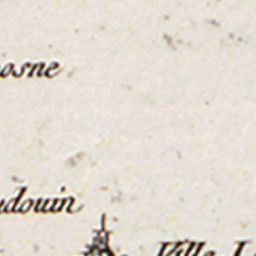 osne
udouin
Ville